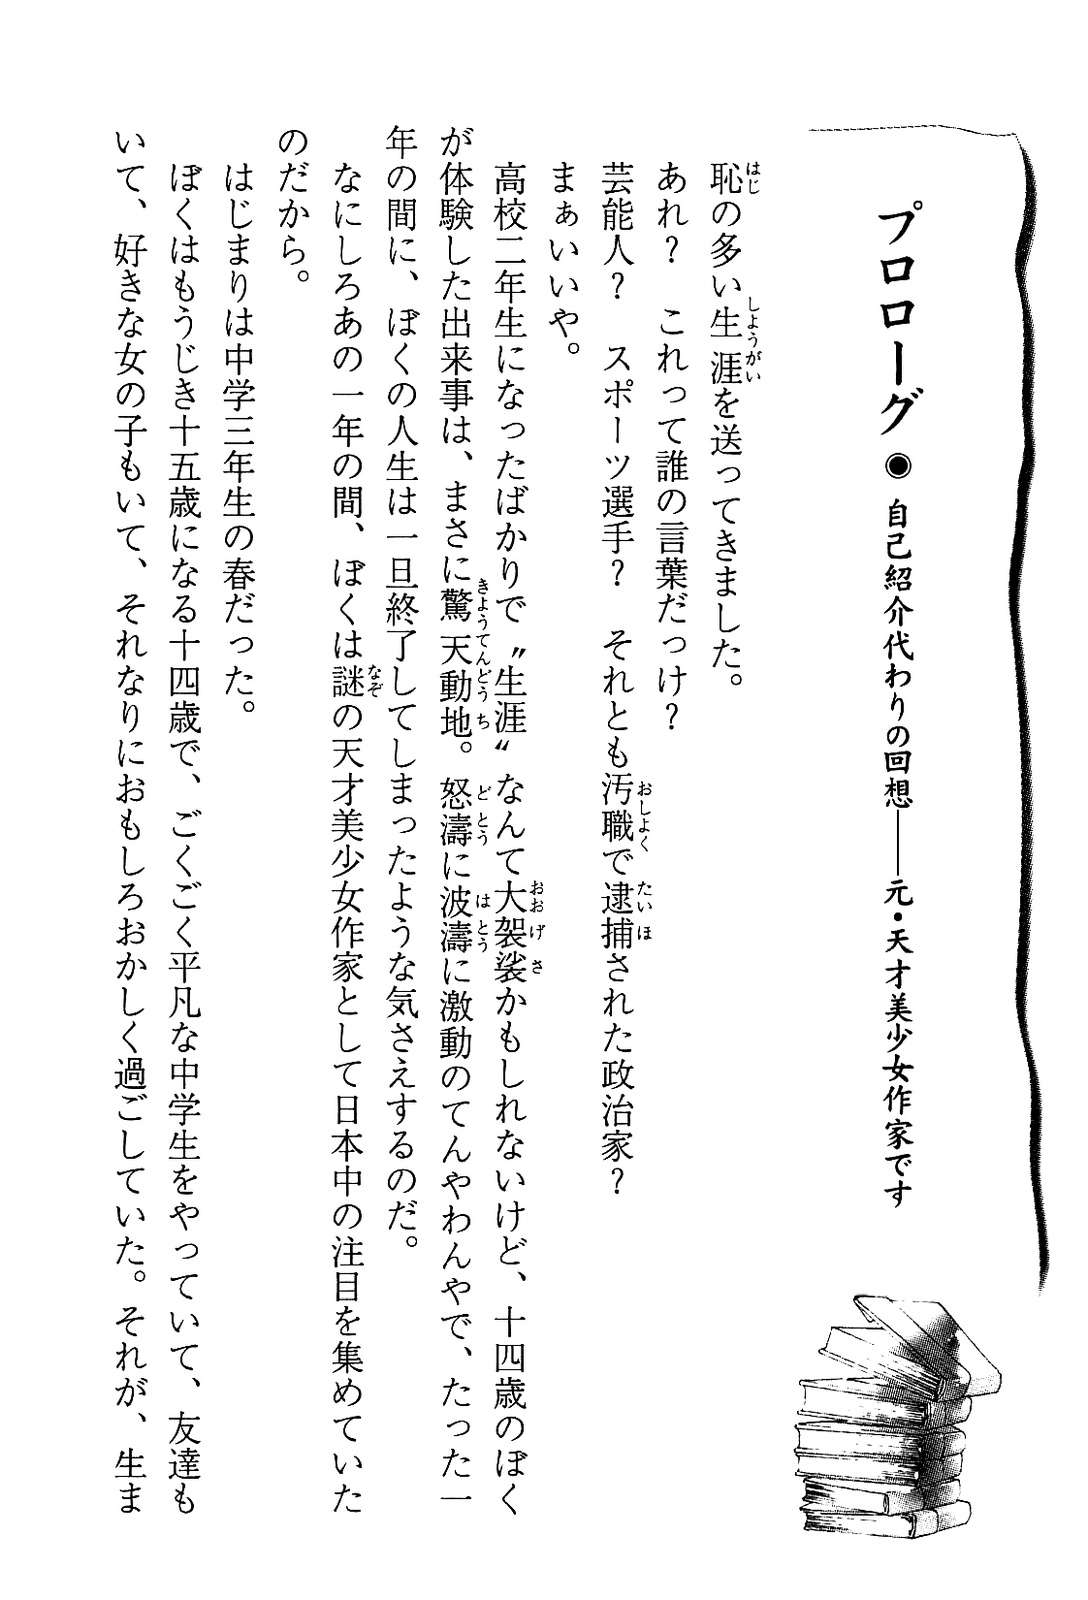 プロローグ◉自己紹介代わりの回想――元・天才美少女作家です
恥の多い生涯を送ってきました。
あれ？　これって誰の言葉だっけ？
芸能人？　スポーツ選手？　それとも汚職で逮捕された政治家？
まぁいいや。
高校二年生になったばかりで〝生涯〟なんて大袈裟かもしれないけど、十四歳のぼく
が体験した出来事は、まさに驚天動地。怒濤に波濤に激動のてんやわんやで、たった一
年の間に、ぼくの人生は一旦終了してしまったような気さえするのだ。
なにしろあの一年の間、ぼくは謎の天才美少女作家として日本中の注目を集めていた
のだから。
はじまりは中学三年生の春だった。
ぼくはもうじき十五歳になる十四歳で、ごくごく平凡な中学生をやっていて、友達も
いて、好きな女の子もいて、それなりにおもしろおかしく過ごしていた。それが、生ま